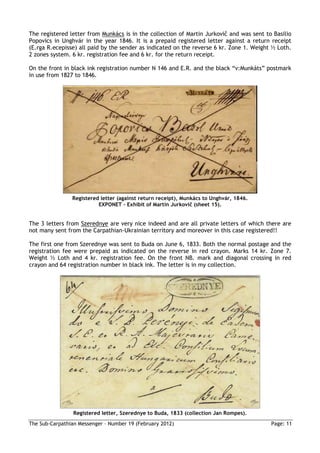 The registered letter from Munkács is in the collection of Martin Jurkovič and was sent to Basilio
Popovics in Unghvár in the year 1846. It is a prepaid registered letter against a return receipt
(E.rga R.ecepisse) all paid by the sender as indicated on the reverse 6 kr. Zone 1. Weight ½ Loth.
2 zones system. 6 kr. registration fee and 6 kr. for the return receipt.
On the front in black ink registration number N 146 and E.R. and the black “v:Munkáts” postmark
in use from 1827 to 1846.
Popovics Basil
Unghvar.
Registered letter (against return receipt), Munkács to Unghvár, 1846.
EXPONET - Exhibit of Martin Jurkovič (sheet 15).
The 3 letters from Szerednye are very nice indeed and are all private letters of which there are
not many sent from the Carpathian-Ukrainian territory and moreover in this case registered!!
The first one from Szerednye was sent to Buda on June 6, 1833. Both the normal postage and the
registration fee were prepaid as indicated on the reverse in red crayon. Marks 14 kr. Zone 7.
Weight ½ Loth and 4 kr. registration fee. On the front NB. mark and diagonal crossing in red
crayon and 64 registration number in black ink. The letter is in my collection.
64
SZEREDNYE
Domino
Consilium
Hungaricum Consiliario
etc. Domino
a
Buda
Registered letter, Szerednye to Buda, 1833 (collection Jan Rompes).
The Sub-Carpathian Messenger – Number 19 (February 2012) Page: 11